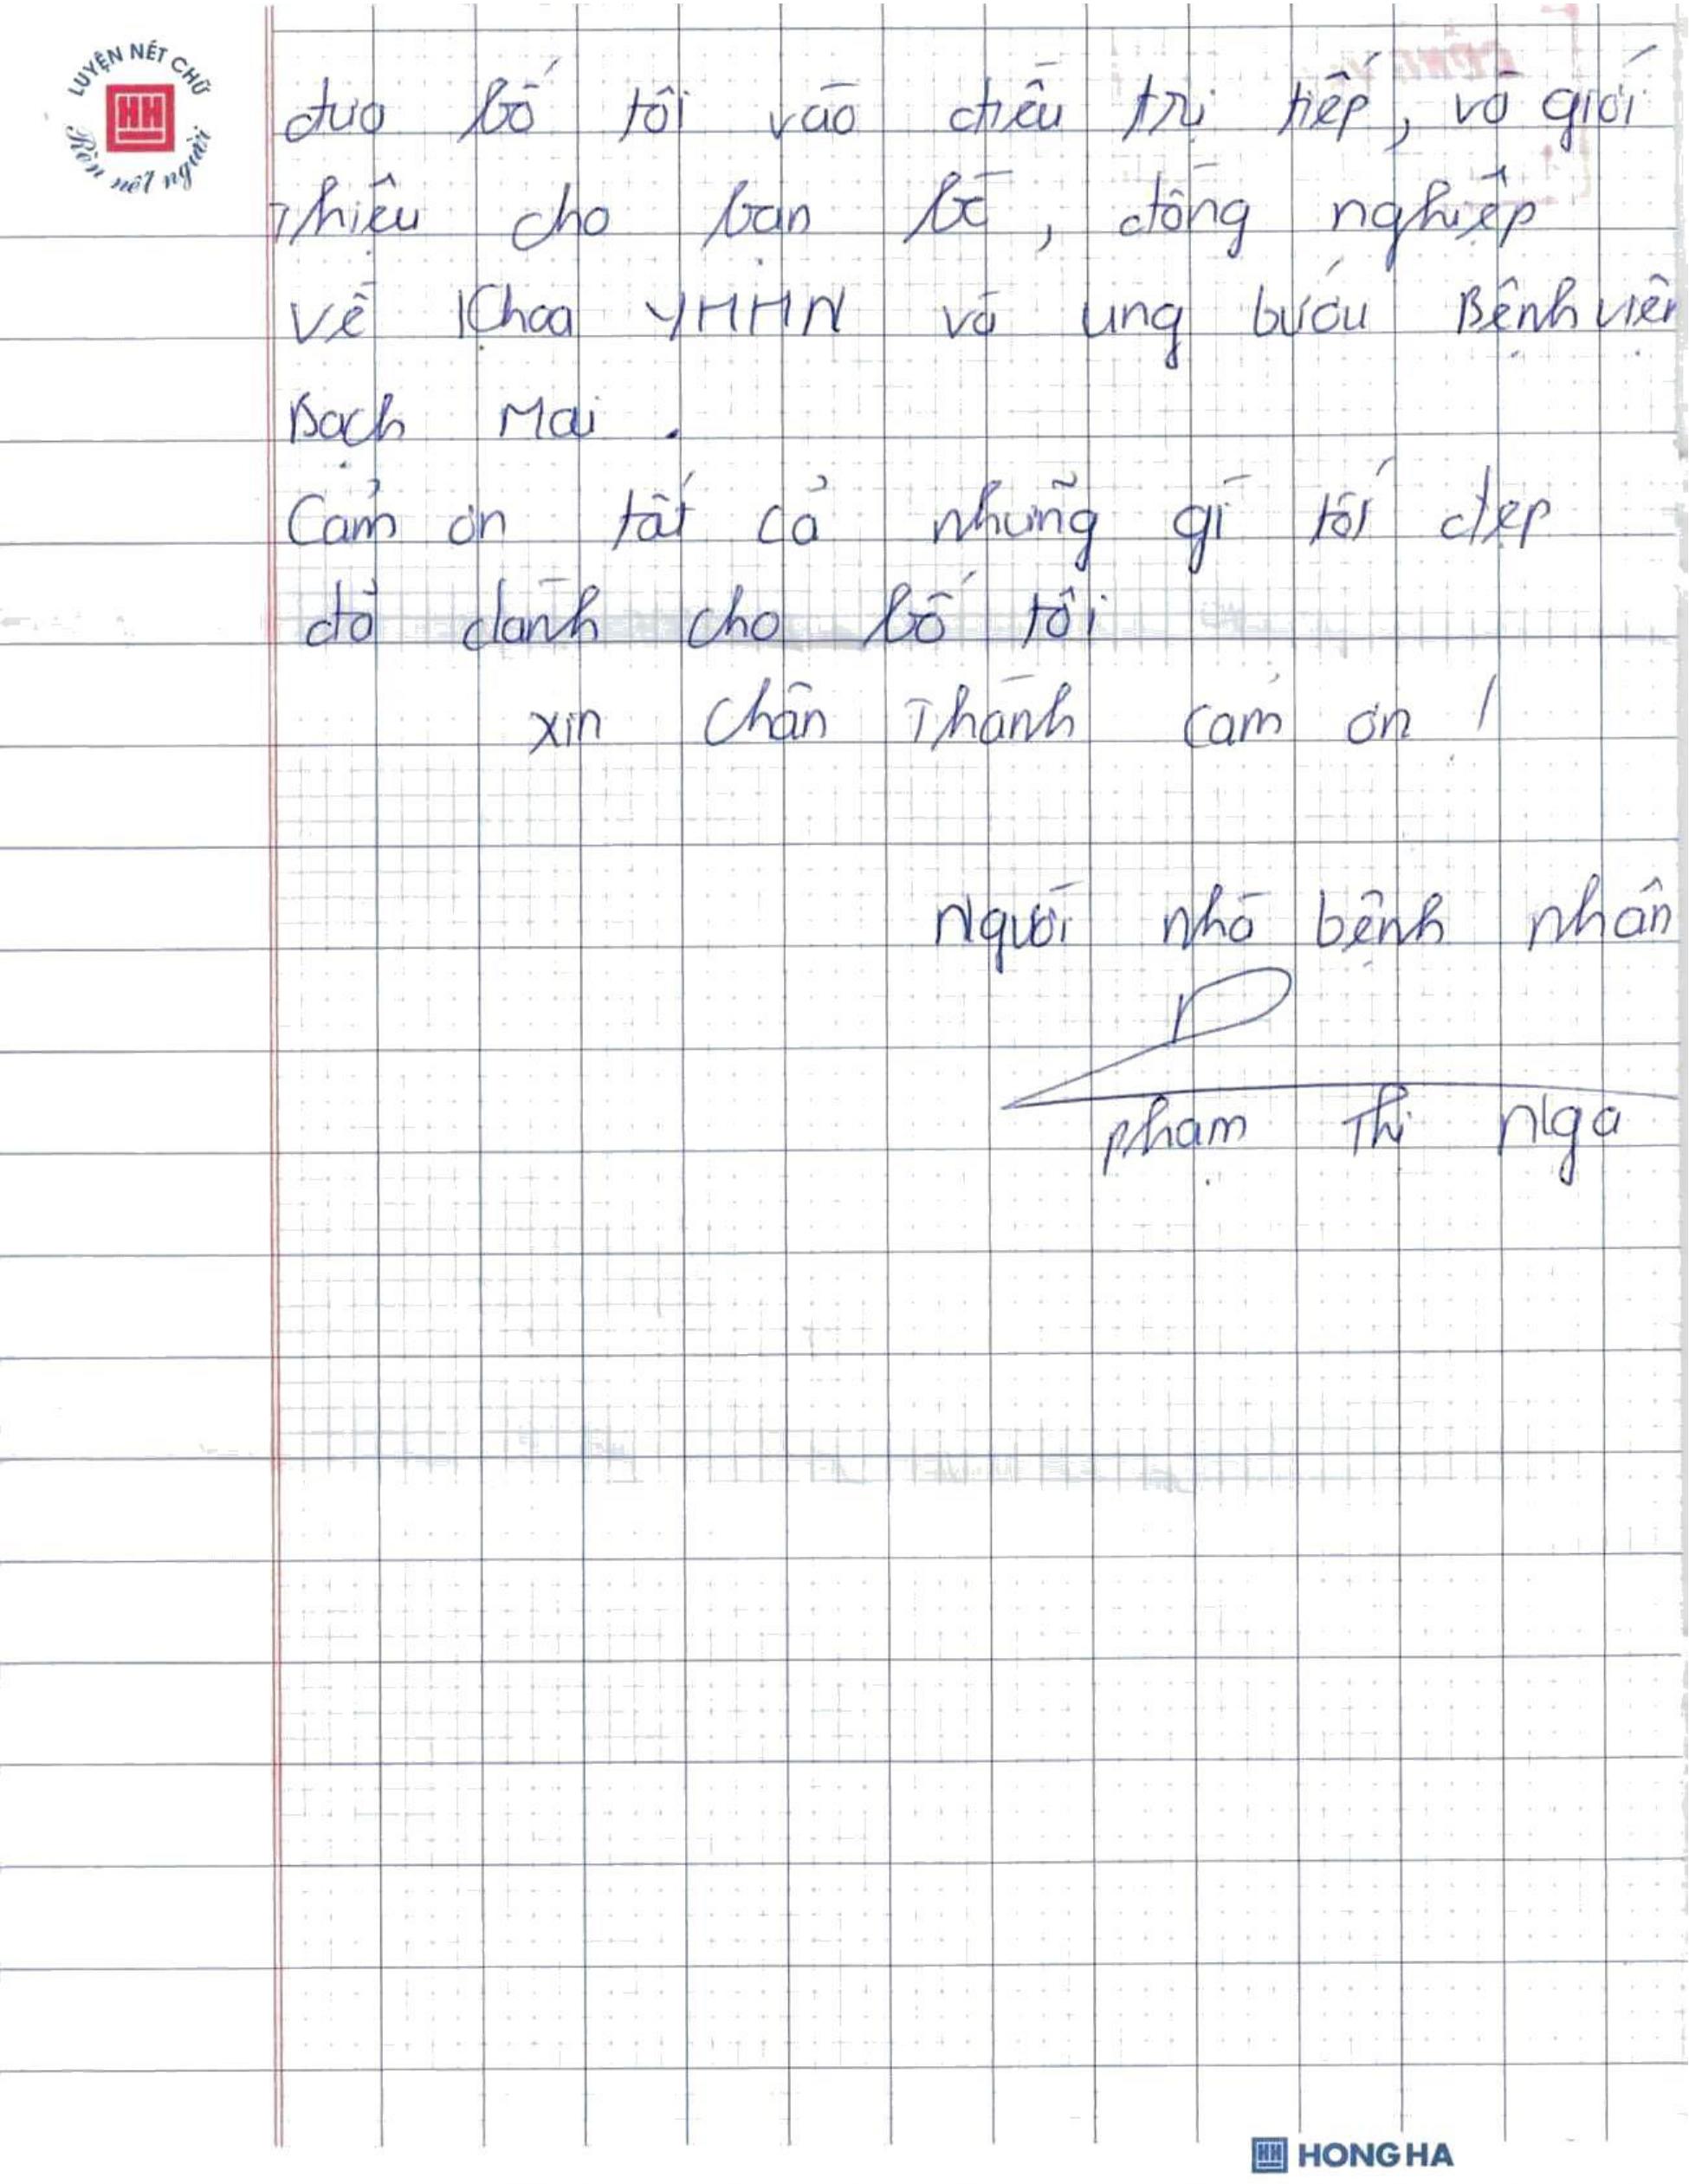 LUYỆN NÉT CHỮ
HH
Rèn nết người
đưa bố tôi vào điều trị tiếp, và giới
Thiệu cho bạn bè, đồng nghiệp
Về Khoa YHHN và ung bướu Bệnh viện
Bạch Mai.
Cảm ơn tất cả những gì tốt đẹp
đã dành cho bố tôi
xin Chân Thành cảm ơn !
Người nhà bệnh nhân
Phạm Thị Nga
HH HONG HA